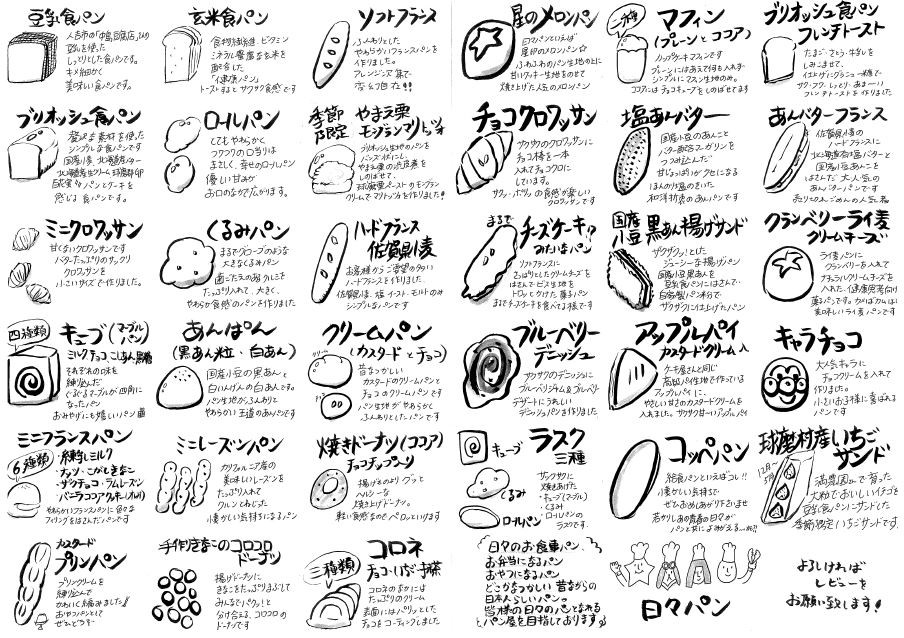 豆乳食パン
人吉市の「中島豆腐店」より
豆乳を使った
しっとりした食パンです。
キメ細かく
美味しい食パンです。
玄米食パン
食物繊維、ビタミン
ミネラル豊富な玄米を
配合した
「健康パン」
トーストするとサクサク食感です
ソフトフランス
ふんわりとした
やわらかいフランスパンを
作りました。
アレンジシダイで
星のメロンパン
日々パンといえば
星印のメロンパン☆
ふわふわのパン生地の上に
甘いクッキー生地をのせて
焼き上げた人気のメロンパン
二種
マフィン
(プレーンとココア)
カップケーキマフィンです
プレーンにはあえて何も入れず
シンプルにマフィン生地のみ。
ココアにはチョコチューブをしのばせてます
ブリオッシュ食パン
フレンチトースト
たまご・ミルク・牛乳を
しみこませて、
ブリオッシュ食パン
贅沢な素材を使った
シンプルな食パンです
国産小麦、北海道バター
北海道生クリーム、球磨郡卵
パンとケーキを
感じる食パンです。
ロールパン
とてもやわらかく
フワフワの口当りは
まさしく、幸せのロールパン
優しい甘みが
お口のなかで広がります。
季節
限定
やまえ栗
モジランマリトッツォ
ブリオッシュ生地のパンを
バンズ状にし、
やまえ栗の渋皮煮を
しのばせて、
球磨栗ペーストのモンブラン
クリームでマリトッツォを作りました!
チョコクロワッサン
サクサクのクロワッサンに
チョコ棒を一本
入れてチョコクロに
しています。
サクッ・ポリッの食感が楽しい
クロワッサンです
塩あんバター
国産小豆のあんこと
バター配合マーガリンを
つつみ込んだ
甘じょっぱいがクセになる
ほんのり塩のきいた
和洋折衷のあんパンです
あんバターフランス
佐賀県小麦の
ハードフランスに
北海道有塩バターと
国産小豆あんこを
はさんだ 大人気の
あんバターパンです
ミニクロワッサン
甘くないクロワッサンです
バターたっぷりのサックリ
クロワッサンを
小さいサイズで作りました。
くるみパン
まるでグローブのような
大きなくるみパン
歯ごたえの有るクルミを
たっぷり入れて、大きく、
やわらか食感のパンを作りました
ハードフランス
佐賀県小麦
お客様からご要望の多い
ハードフランスを作りました。
佐賀県小麦、塩、イースト、モルトのみ
シンプルなパンです
まるで
チーズケーキ!?
みたいなパン
ソフトフランスに
さっぱりとしたクリームチーズを
はさんで、ビス生地を
トロッとつけた菓子パン
まるでチーズケーキを食べてる様です
国産
小豆
黒あん揚げサンド
サクサクッとした
ジューシーな揚げパン
国産小豆黒あんを
豆乳食パンにはさんで、
自家製パン粉で
サクサクに仕上げたパン
クランベリーライ麦
クリームチーズ
ライ麦パンに
クランベリーを入れて
ナチュラルクリームチーズを
入れた、健康思考向け
菓子パンです。カルパカルは
美味しいライ麦パンです
四種類
キューブ(マーブル)
パン
ミルク、チョコ、こしあん、黒糖
それぞれの味を
練り込んだ
ぐるぐるマーブルが四角に
なったパン
おみやげにも嬉しいパン
あんぱん
(黒あん粒・白あん)
国産小豆の黒あんと
白いんげんの白あんです。
パン生地からふんわりと
やわらかい王道のあんパンです
クリームパン
(カスタードとチョコ)
昔なつかしい
カスタードのクリームパンと
チョコのクリームパンです
パン生地がやわらかく
ふんわりとしたパンです
ブルーベリー
デニッシュ
サクサクのデニッシュに
ブルーベリージャム&ブルーベリー
デザートにうれしい
デニッシュパンを作りました
アップルパイ
カスタードクリーム入
ケーキ屋さんと同じ
高級パイ生地で作っている
アップルパイに、
やさしい甘さのカスタードクリームを
入れました。サクサクせーいアップルパイ
キャラチョコ
大人気キャラに
チョコクリームを入れて
作りました。
小さいお子様に喜ばれる
パンです
ミニフランスパン
6種類
・練乳ミルク
・ナッツ・こがしきなこ
・ザクチョコ・ラムレーズン
・バニラココアクッキー(オレオ)
やわらかいフランスパンに色々な
フィリングをはさんだパンです
ミニレーズンパン
カリフォルニア産の
美味しいレーズンを
たっぷり入れて
クルンとねじった
懐かしい気持ちになるパン
焼きドーナツ(ココア)
チョコチップ入り
揚げるのより グッと
ヘルシーな
焼き上げドーナツ。
軽い食感なのでペロッといけます
キューブ
くるみ
ロールパン
ラスク
三種
サックサクに
焼きあげた
・キューブ(マーブル)
・くるみ
・ロールパンの
ラスクです。
コッペパン
給食パンといえばコレ!!
懐かしい気持ちで
ぜひお召しあがり下さいませ
若かりしあの青春の日々が
パンと共によみがえる…れ!!
球磨村産いちご
サンド
12月〜
5月
満農園さんで育った
大粒でおいしいイチゴを
豆乳食パンにサンドした
季節限定いちごサンドです。
カスタード
プリンパン
プリンクリームを
練り込んで
かわいく編みました!!
おやつパンとして
ぜひどうぞ…
手作りきなこのコロコロ
ドーナツ
揚げドーナツに
きなこをたっぷりまぶして
みんなでパクッ!と
分け合える、コロコロの
ドーナツです
三種類
コロネ
チョコ・いちご・抹茶
コロネのなかには
たっぷりのクリーム
表面にはパリッとした
チョコをコーティングしました
日々のお食事パン、
お弁当になるパン
おやつになるパン
どこかなつかしい 昔ながらの
日本人らしいパン。
皆様の日々のパンとなれる
パン屋を目指しております
日々パン
よろしければ
レビューを
お願い致します!